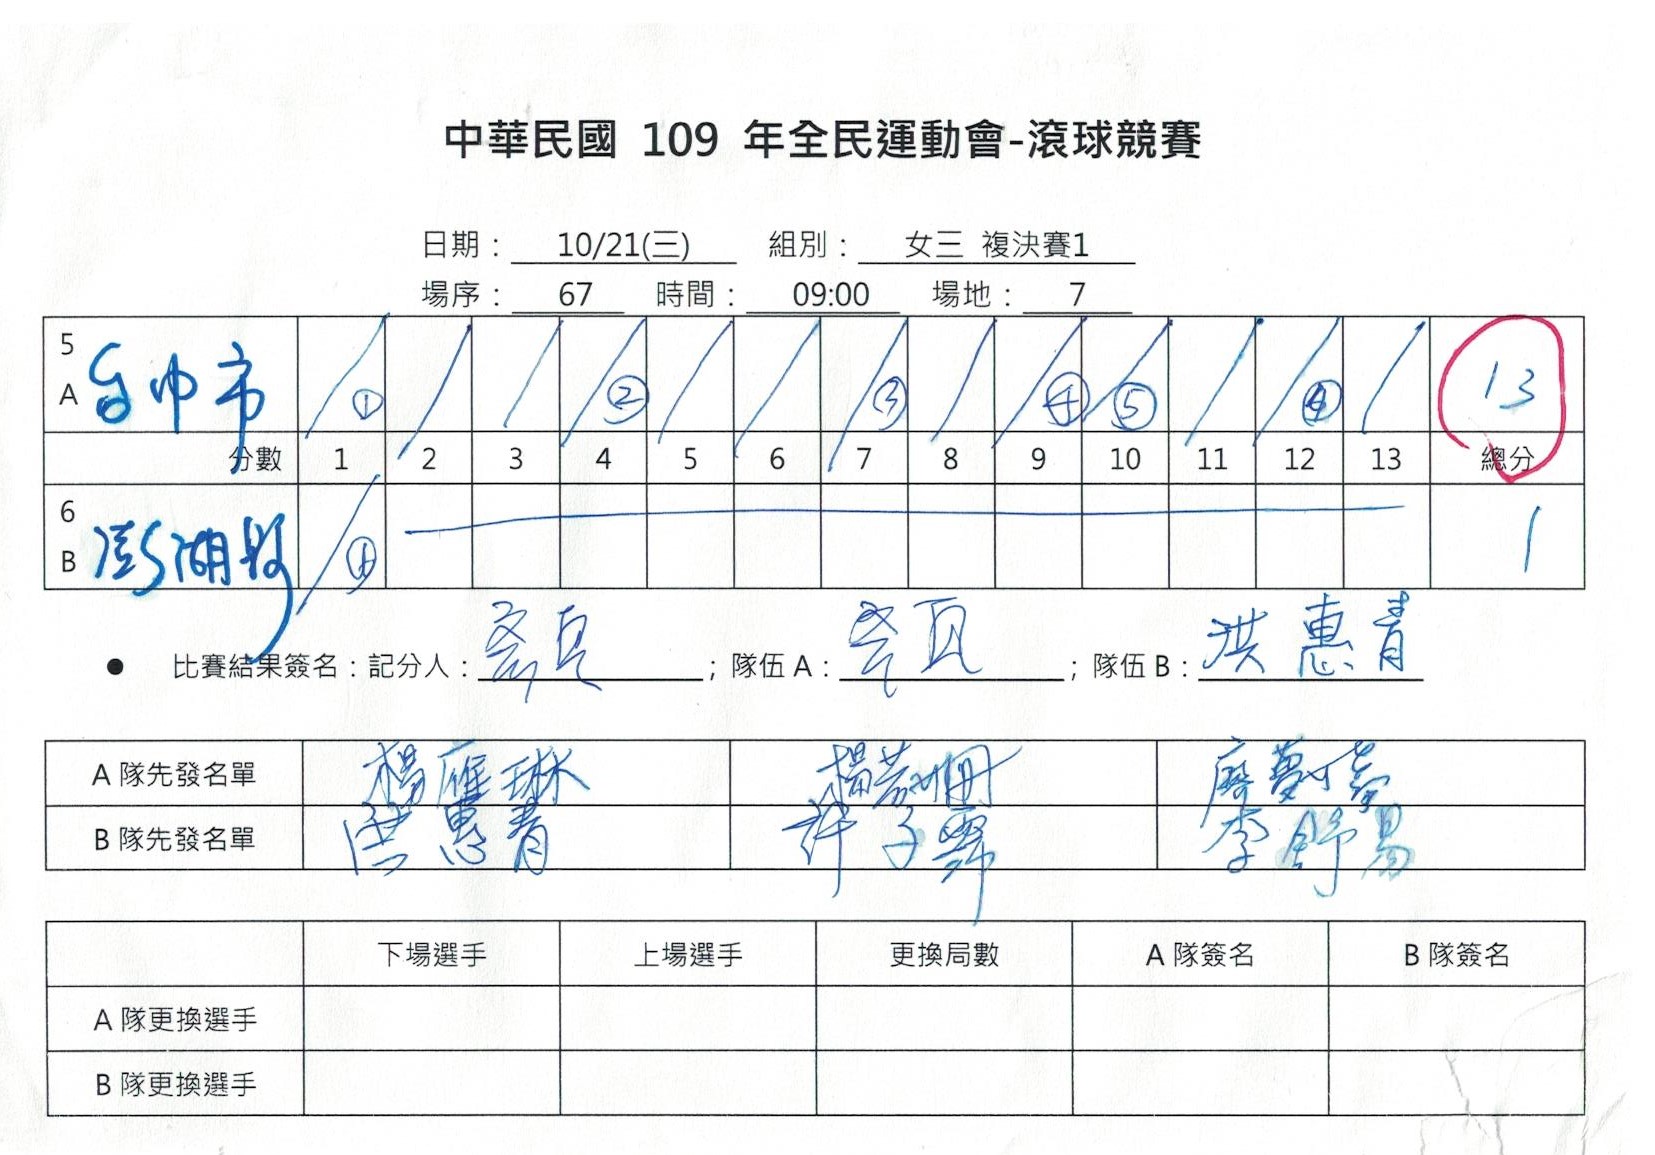 中華民國 109 年全民運動會-滾球競賽
日期： 10/21(三) 組別： 女三 複決賽1
場序： 67 時間： 09:00 場地： 7
5
A 台中市 ① ② ③ ④ ⑤ 13
分數 1 2 3 4 5 6 7 8 9 10 11 12 13 總分
6
B 澎湖縣 1
● 比賽結果簽名：記分人： ；隊伍 A： ；隊伍 B： 洪惠青
A 隊先發名單 楊雁琳 楊芳姍
B 隊先發名單 洪惠青 許子霽 李舒易
下場選手 上場選手 更換局數 A 隊簽名 B 隊簽名
A 隊更換選手
B 隊更換選手